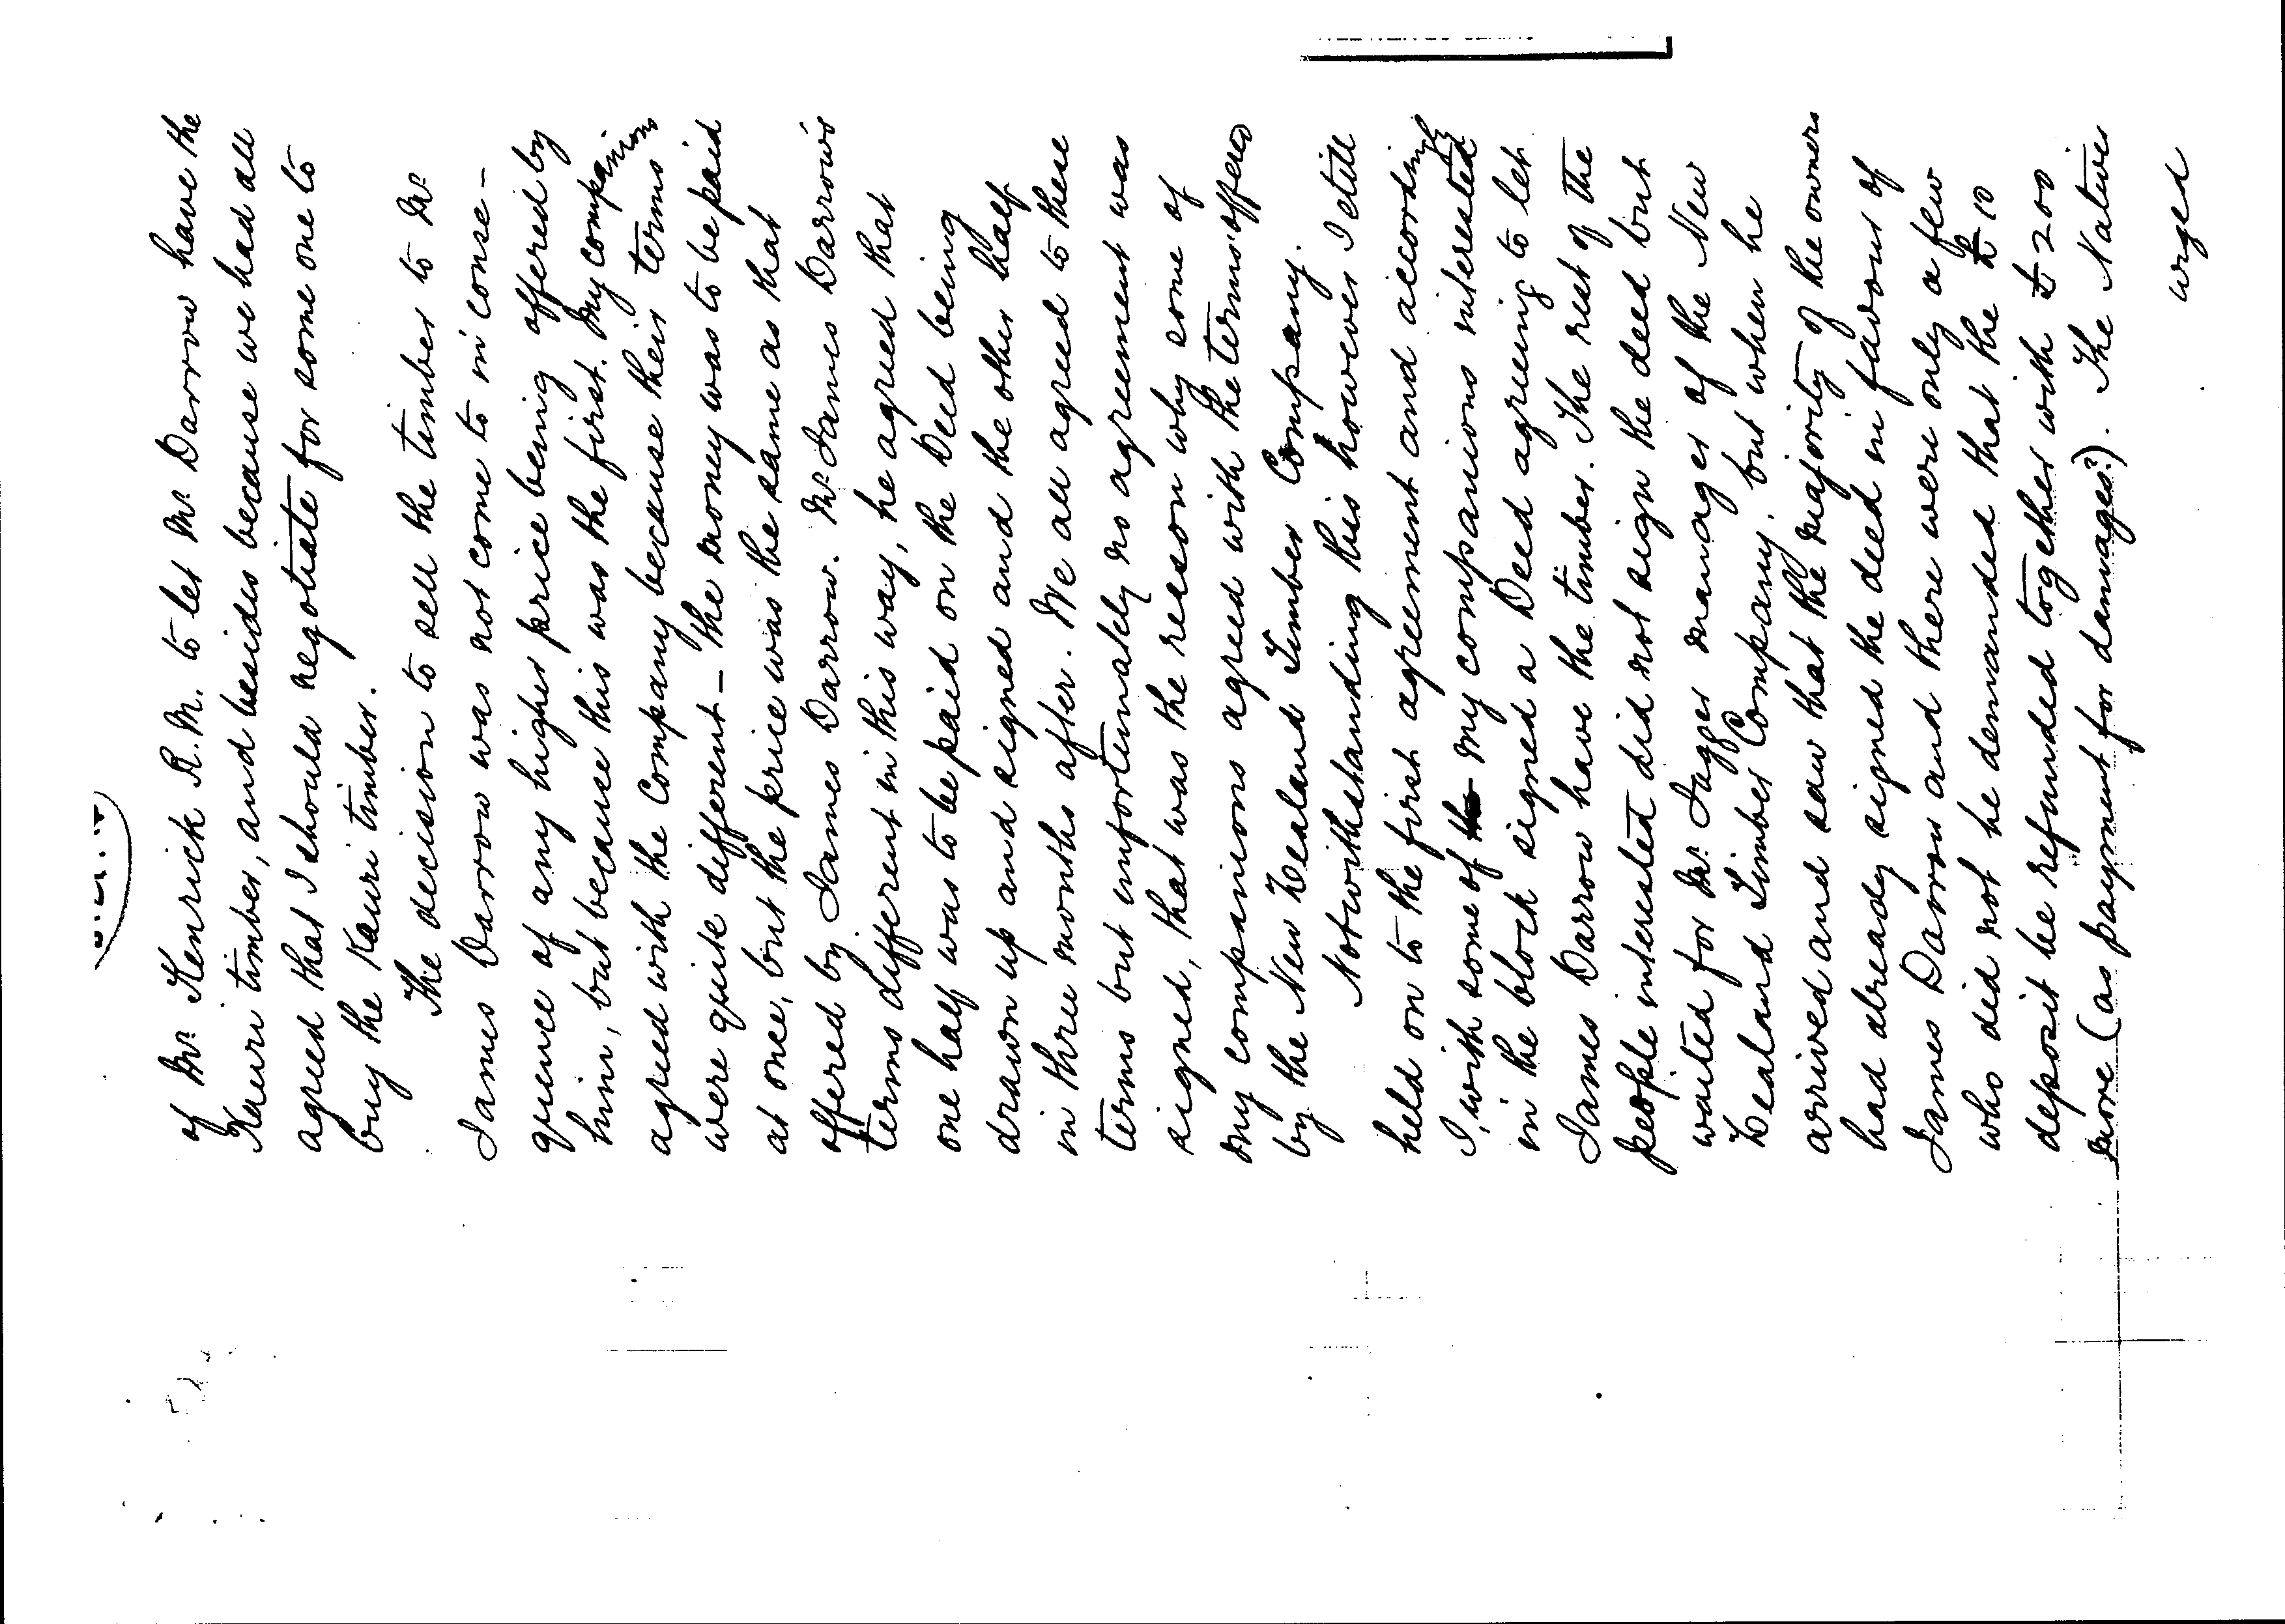 of Mr. Kenrick R.M. to let Mr. Darrow have the
Kauri timber, and besides because we had all
agreed that I should negotiate for some one to
buy the Kauri timber.
The decision to sell the timber to Mr.
James Darrow was not come to in conse-
quence of any higher price being offered by
him, but because this was the first. My companions
agreed with the Company because their terms
were quite different - The money was to be paid
at once, but the price was the same as that
offered by James Darrow. Mr. James Darrow's
terms different in this way, he agreed that
one half was to be paid on the Deed being
drawn up and signed and the other half
in three months after. We all agreed to these
terms but unfortunately no agreement was
signed, that was the reason why some of
my companions agreed with the terms offered
by the New Zealand Timber Company.
Notwithstanding this however I still
held on to the first agreement and accordingly
I, with some of my companions interested
in the block signed a Deed agreeing to let
James Darrow have the timber. The rest of the
people interested did not sign the deed but
waited for Mr. Jagger manager of the New
Zealand Timber Company, but when he
arrived and saw that the majority of the owners
had already signed the deed in favour of
James Darrow and there were only a few
who did not he demanded that the £10
deposit be refunded together with £200
more (as payment for damages?). The Natives
urged